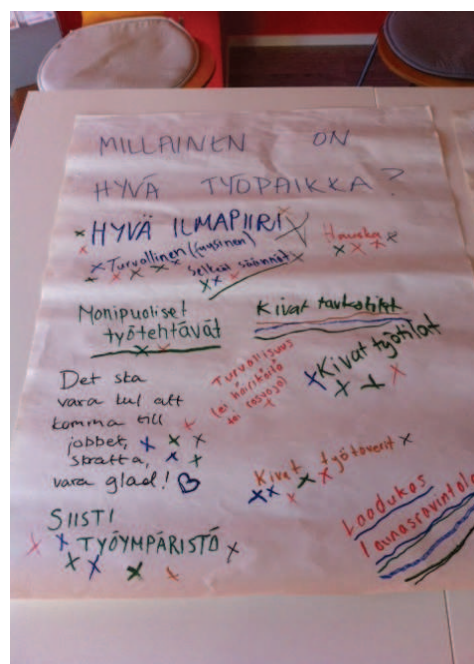 MILLAINEN ON
HYVÄ TYÖPAIKKA?
HYVÄ ILMAPIIRI
Hauska
Turvallinen (fyysinen)
Selkeät säännöt
Monipuoliset
työtehtävät
Kivat
Kivat työtilat
Turvallisuus
(ei häiriköitä
Det ska
vara kul att
komma till
jobbet,
skratta,
vara glad!
Kivat työtoverit
SIISTI
TYÖYMPÄRISTÖ
Laadukas